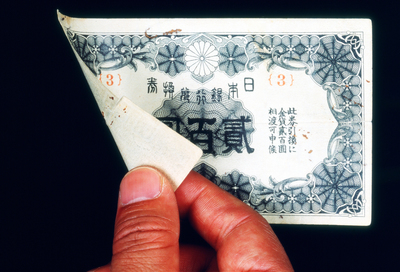 {3} {3}
日本銀行兌換券
貳百
此券引換に
金貨貳百圓
相渡可申候